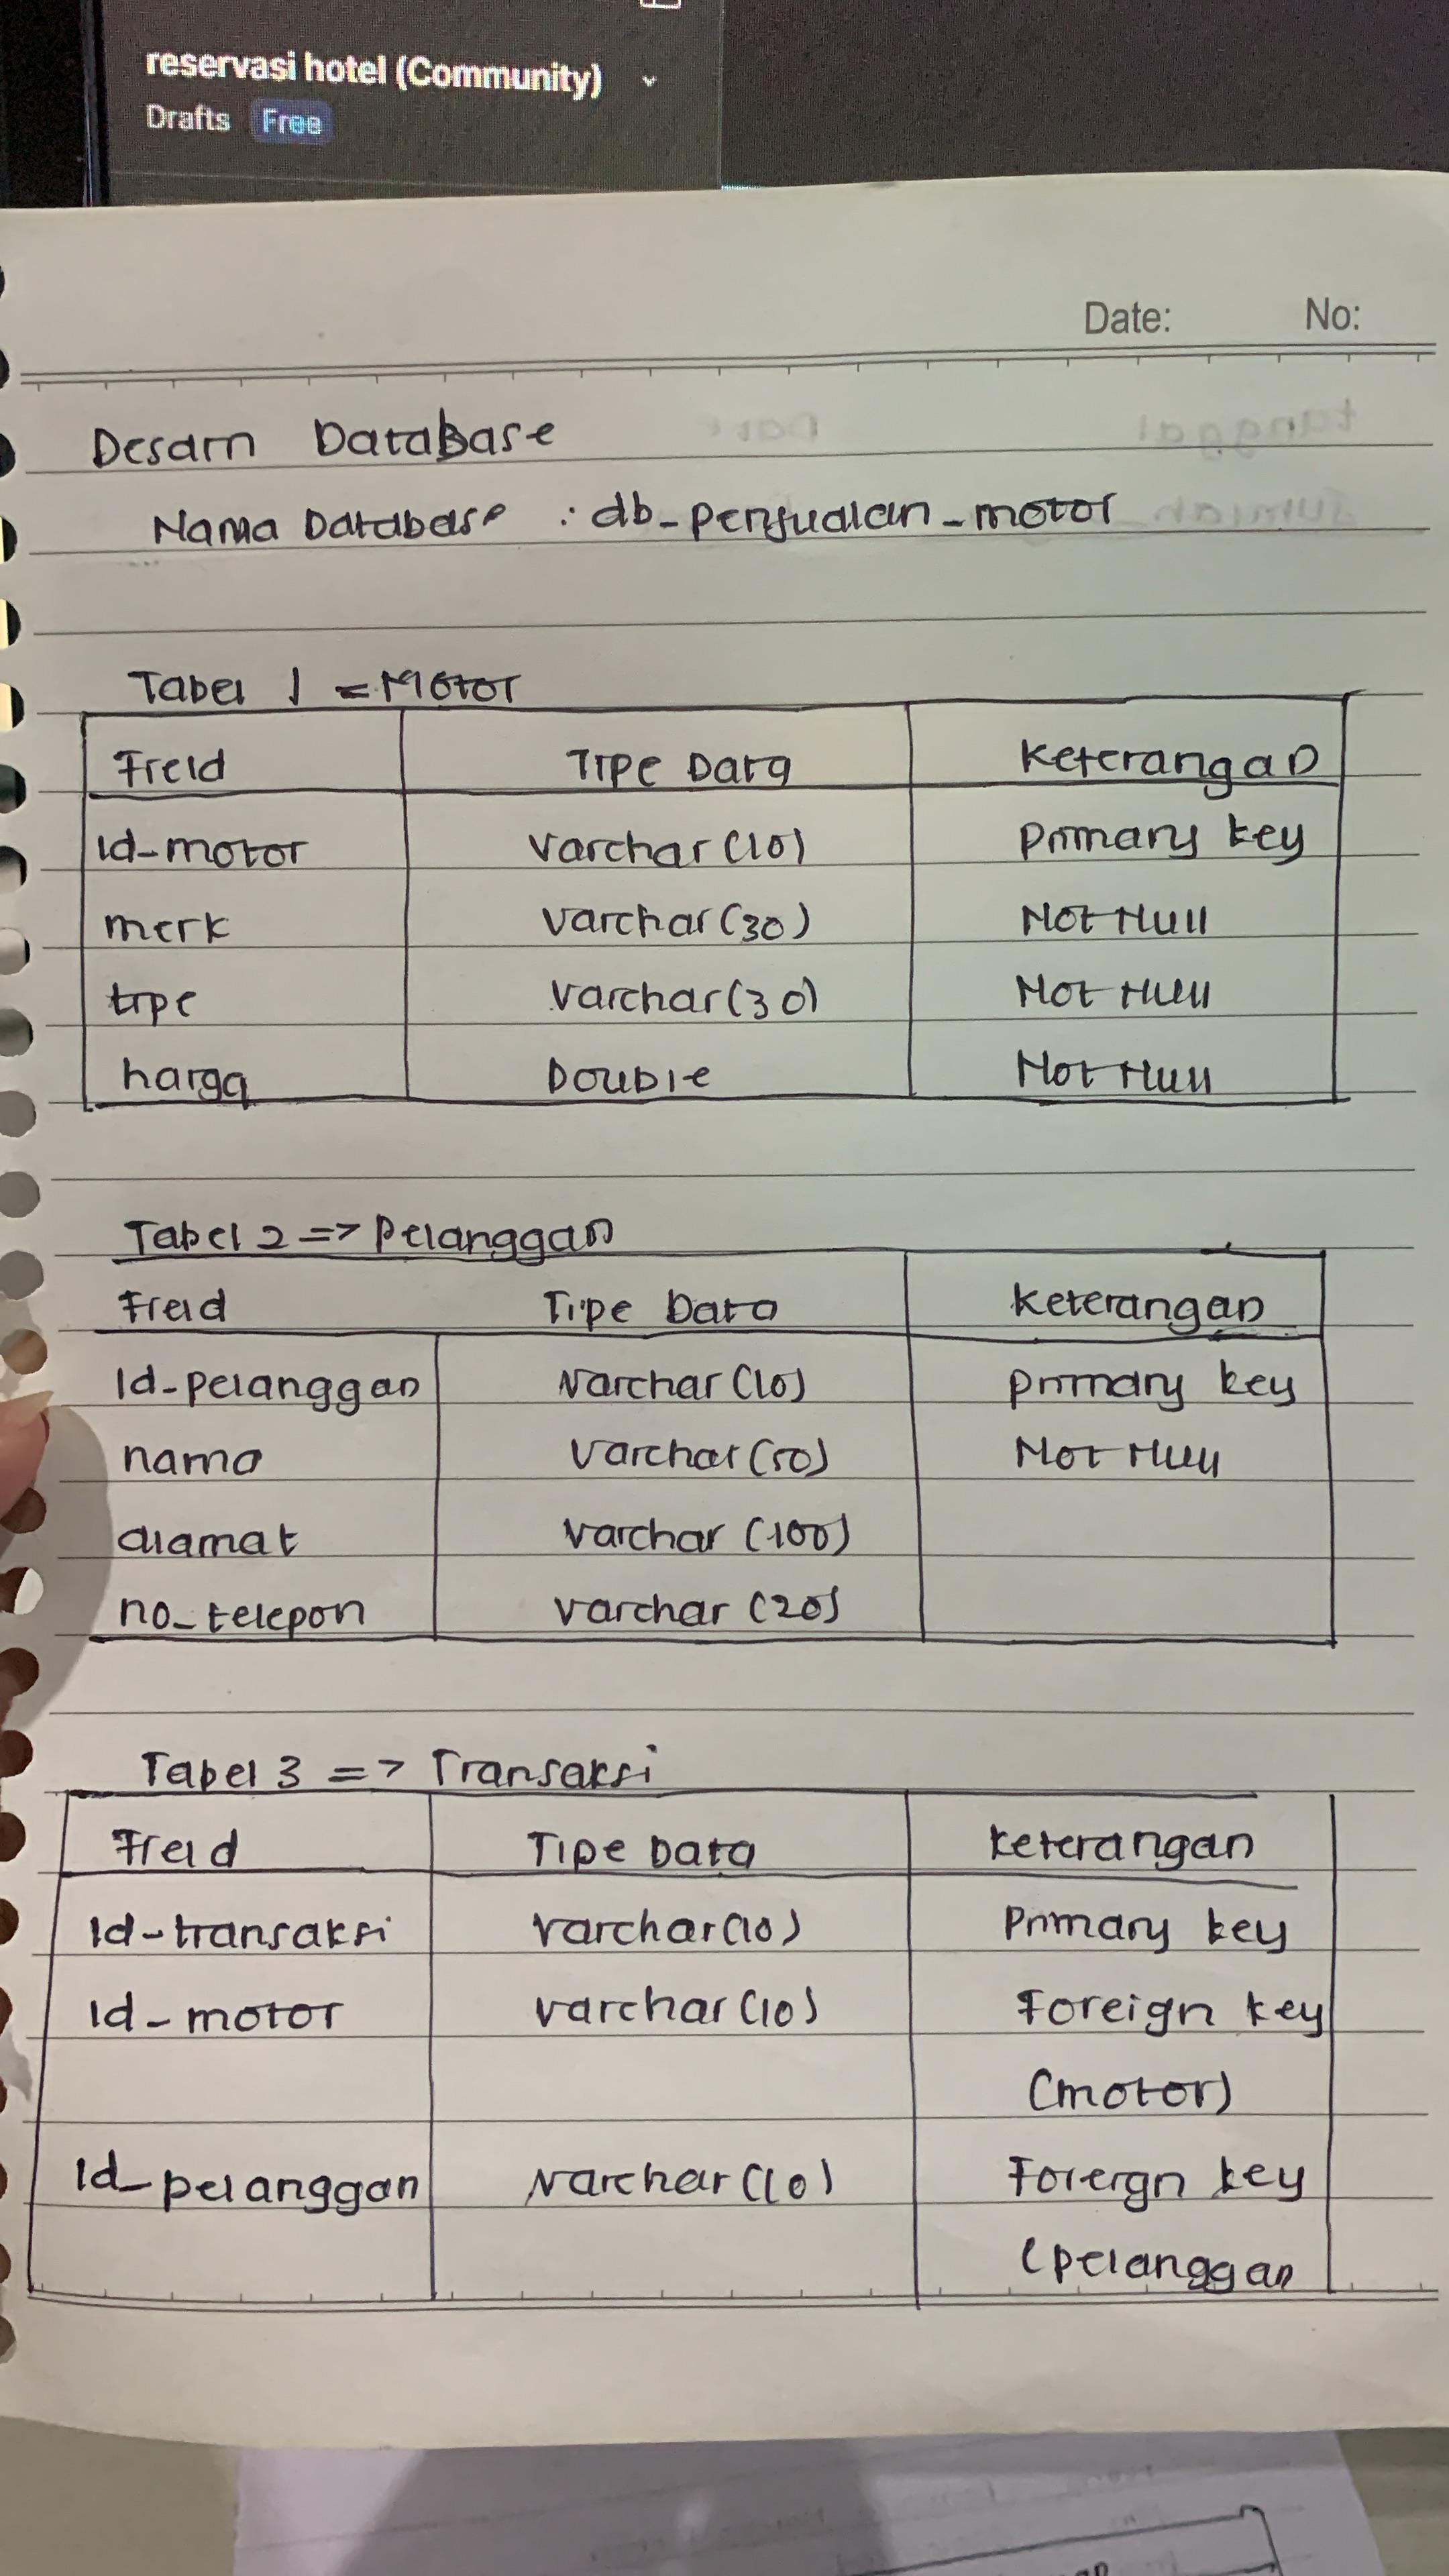 reservasi hotel (Community)
Drafts Free
Date: No:
Desain Database
Nama Database : db_penjualan_motor
Tabel 1 = Motor
Field Tipe Data Keterangan
id_motor varchar (10) Primary key
merk varchar (30) Not Null
tipe varchar (30) Not Null
harga Double Not Null
Tabel 2 => Pelanggan
Field Tipe Data Keterangan
Id_pelanggan Varchar (10) primary key
nama Varchar (50) Not Null
alamat varchar (100)
no_telepon varchar (20)
Tabel 3 => Transaksi
Field Tipe Data keterangan
Id_transaksi varchar (10) Primary key
Id_motor varchar (10) Foreign key
(motor)
Id_pelanggan Varchar (10) Foreign key
(pelanggan